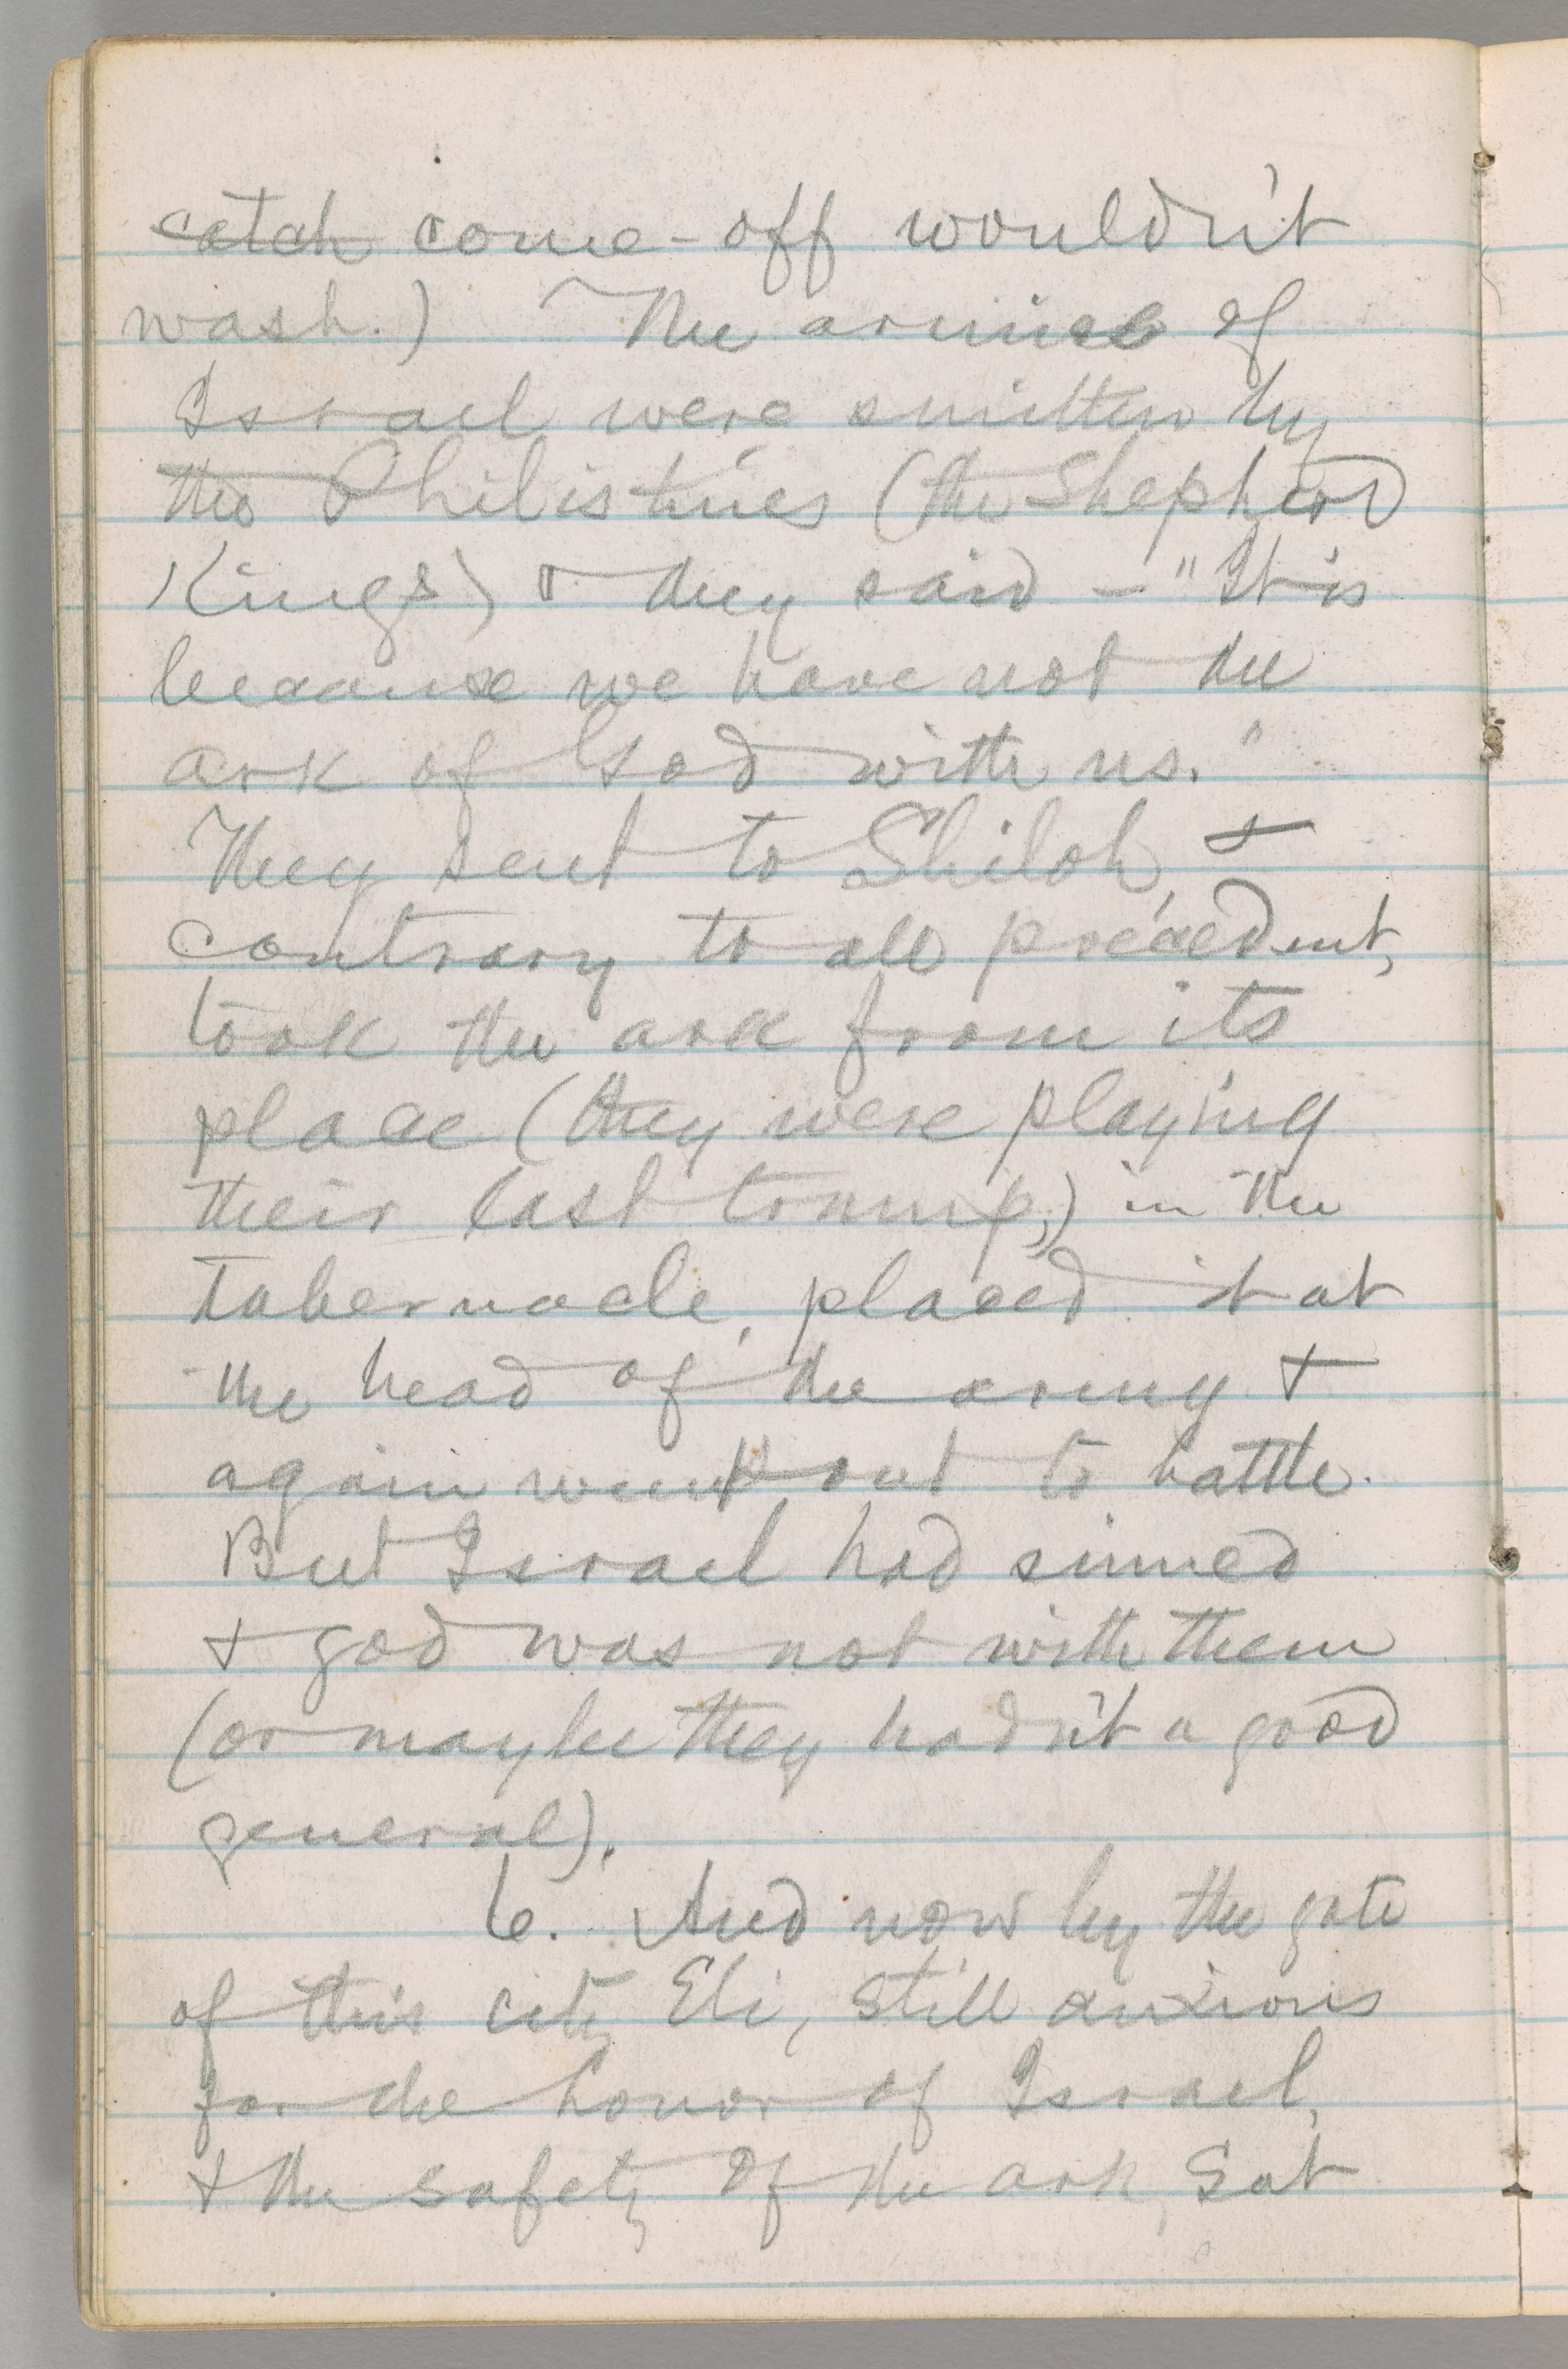 catch come-off wouldn't
wash.) The armies of
Israel were smitten by
the Philistines (the Shepherd
Kings) & they said – "It is
because we have not the
ark of God with us."
They sent to Shiloh, &
contrary to all precedent,
took the ark from its
place (they were playing
their last trump,) in the
tabernacle, placed it at
the head of the army &
again went out to battle.
But Israel had sinned
& god was not with them
(or maybe they hadn't a good
general).
6. And now by the gate
of this city Eli, still anxious
for the honor of Israel,
& the safety of the ark, sat